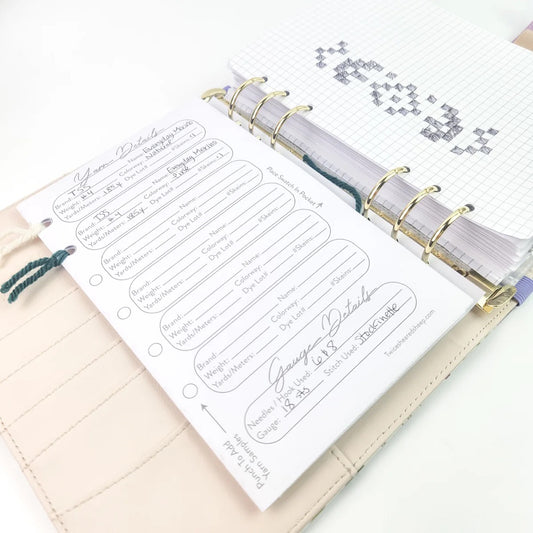 Yarn Details
Brand: TSS Name: Everyday Merino
Weight: #4 Colorway: Natural
Yards/Meters: 185 y Dye Lot#: #Skeins: <1
Brand: TSS Name: Everyday Merino
Weight: #4 Colorway:
Yards/Meters: 185 y Dye Lot#: #Skeins: <1
Brand: Name:
Weight: Colorway:
Yards/Meters: Dye Lot#: #Skeins:
Brand: Name:
Weight: Colorway:
Yards/Meters: Dye Lot#: #Skeins:
Brand: Name:
Weight: Colorway:
Yards/Meters: Dye Lot#: #Skeins:
Gauge Details
Needles / Hook Used: 6 & 8
Gauge: 18 sts Stitch Used: Stockinette
Place Swatch In Pocket
Punch To Add
Yarn Samples
Twiceshearedsheep.com